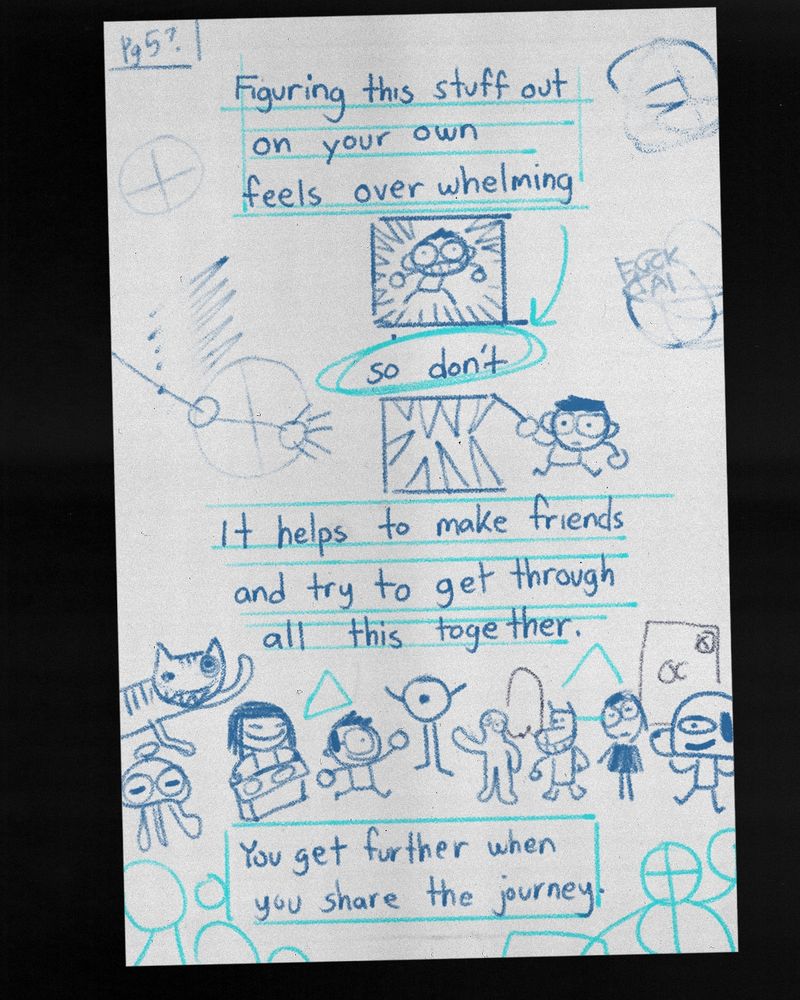 Pg 5?
Figuring this stuff out
on your own
feels over whelming
so don't
It helps to make friends
and try to get through
all this together.
You get further when
you share the journey.